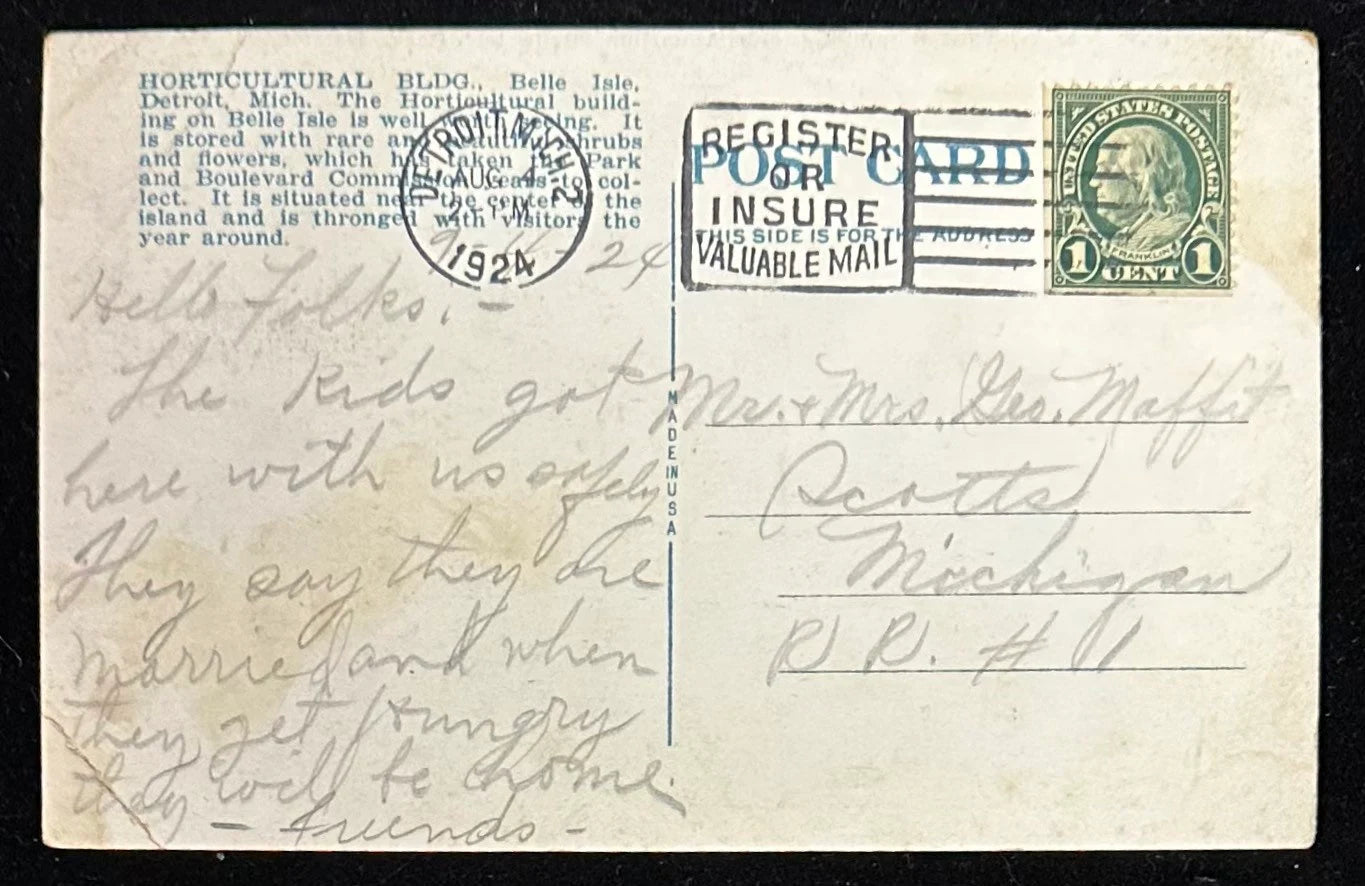 HORTICULTURAL BLDG., Belle Isle,
Detroit, Mich. The Horticultural build-
ing on Belle Isle is well worth seeing. It
is stored with rare and beautiful shrubs
and flowers, which has taken the Park
and Boulevard Commission years to col-
lect. It is situated near the center of the
island and is thronged with visitors the
year around.
DETROIT, MICH.
AUG 4
2 PM
1924
REGISTER
OR
INSURE
VALUABLE MAIL
POST CARD
THIS SIDE IS FOR THE ADDRESS
UNITED STATES POSTAGE
FRANKLIN
1 CENT 1
24
Hello Folks,-
The kids got
here with us safely
They say they are
married and when
they get hungry
they will be home.
- Friends -
MADE IN USA
Mr. + Mrs. Geo. Maffit
Scotts
Michigan
R R. # 1